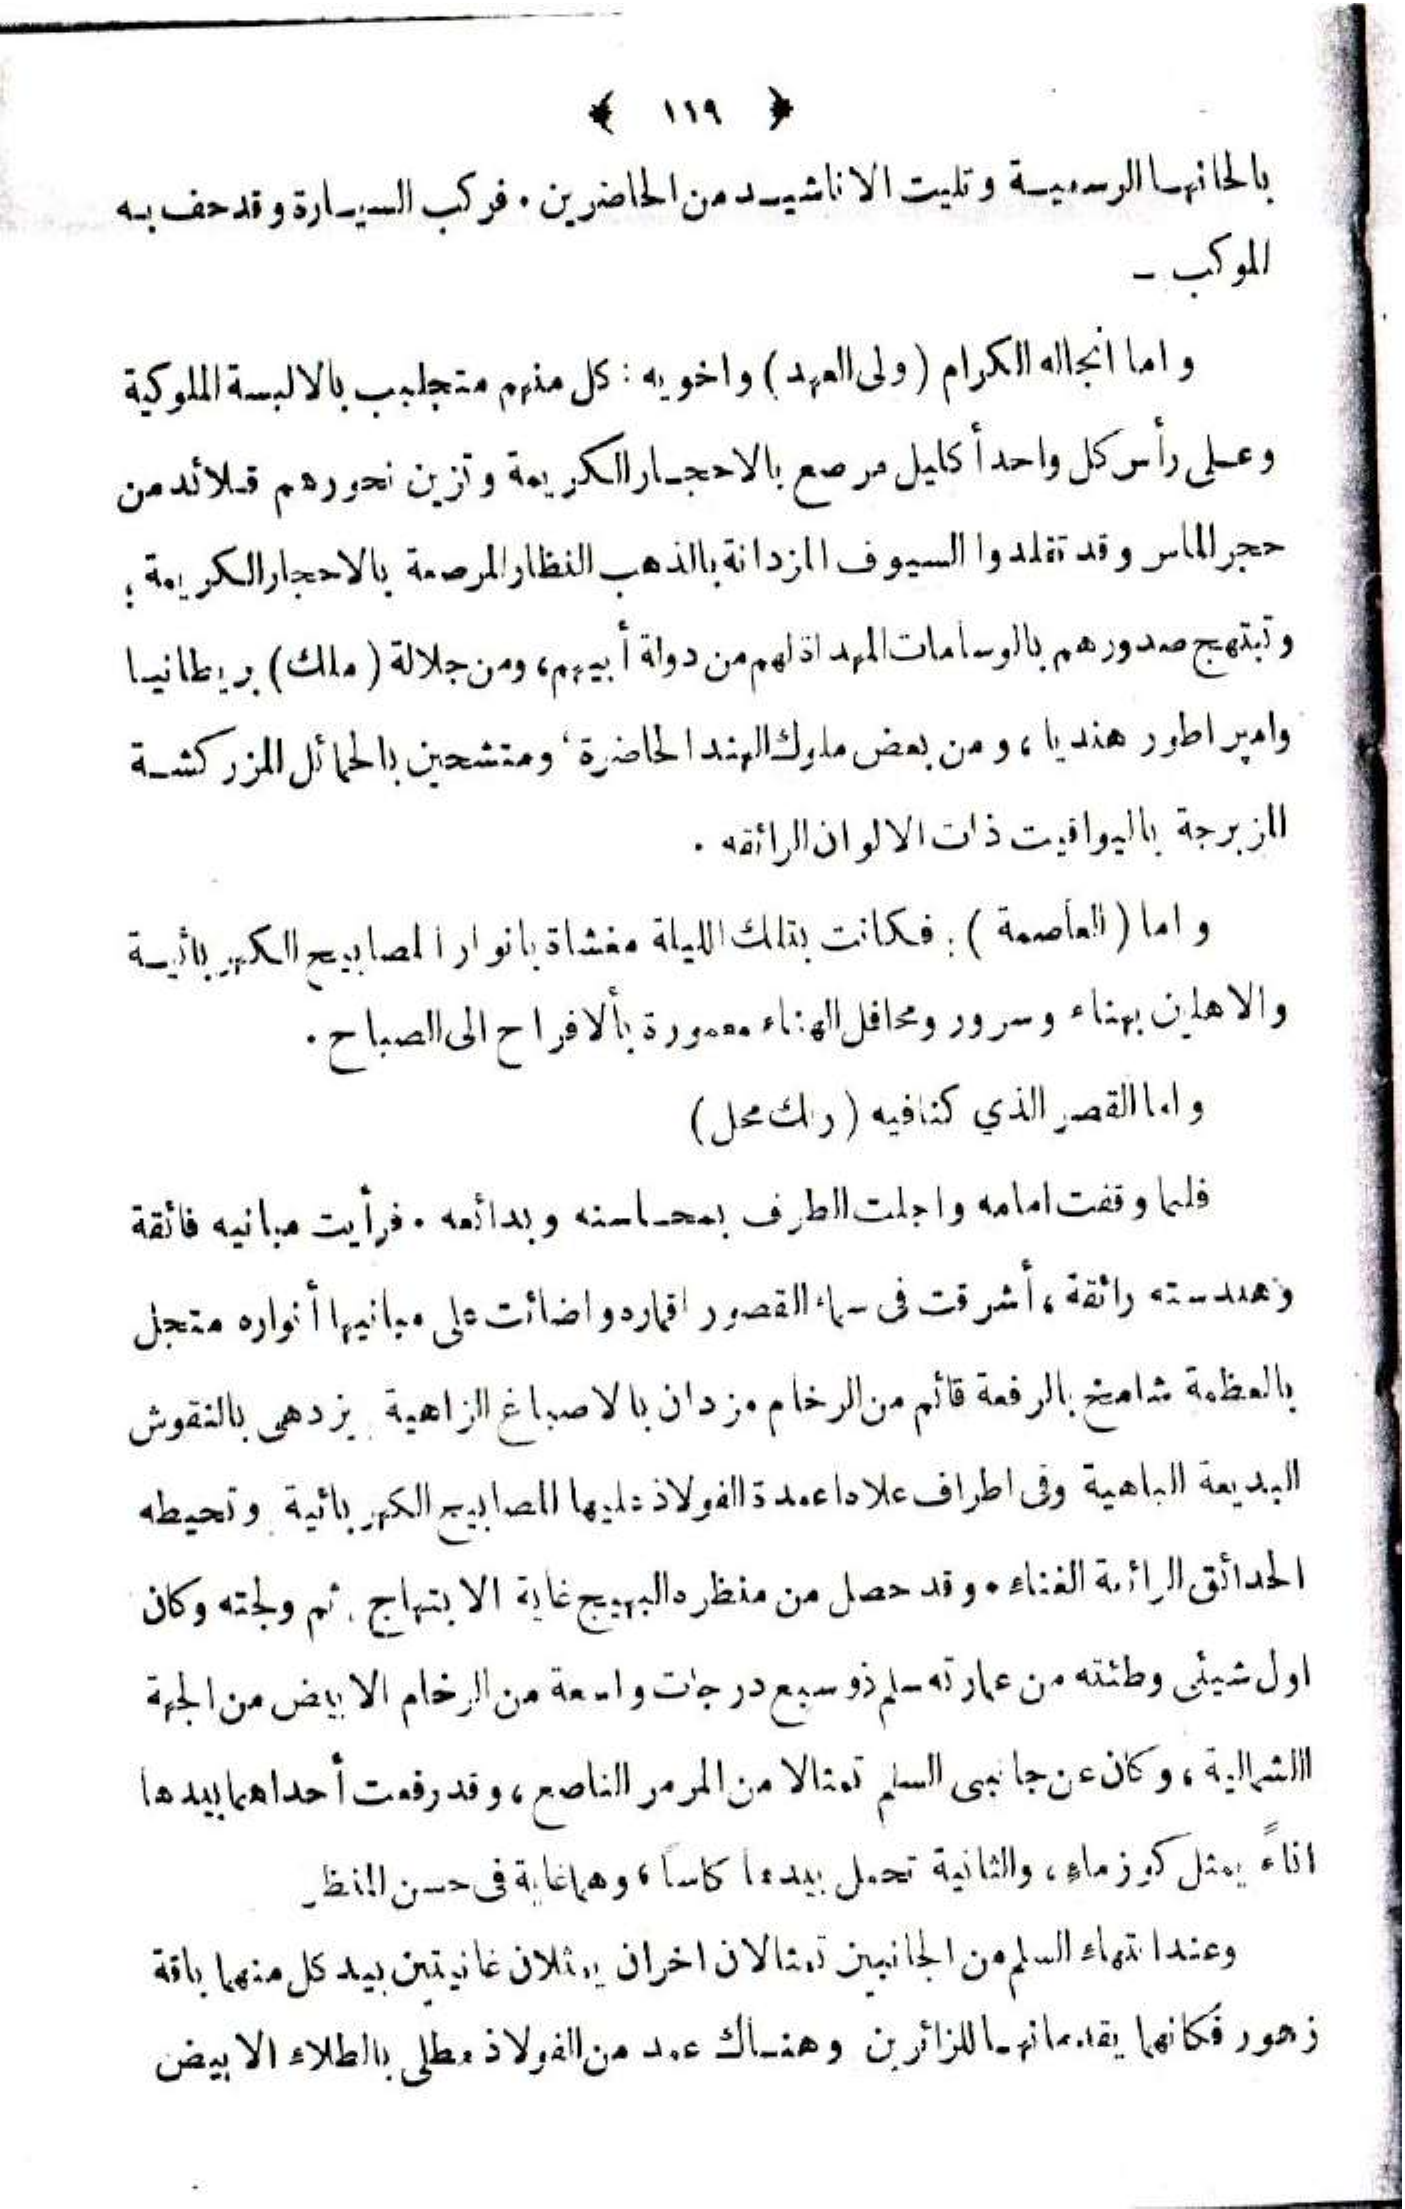 ﴿ ١١٩ ﴾
بالحانها الرسمية وتليت الاناشيد من الحاضرين . فركب السيارة وقد حف به
الموكب –
واما انجاله الكرام ( ولى العهد ) واخويه : كل منهم متجلبب بالالبسة الملوكية
وعلى رأس كل واحد أكليل مرصع بالاحجار الكريمة وتزين نحورهم قلائد من
حجر الماس وقد تقلدوا السيوف المزدانة بالذهب النظار المرصعة بالاحجار الكريمة ؛
وتبتهج صدورهم بالوسامات المهداة لهم من دولة أبيهم ، ومن جلالة ( ملك ) بريطانيا
وامبراطور هنديا ، ومن بعض ملوك الهند الحاضرة ، ومتشحين بالحمائل المزركشة
المزبرجة باليواقيت ذات الالوان الرائقه .
واما ( العاصمة ) : فكانت بتلك الليلة مغشاة بانوار المصابيح الكهربائية
والاهلين بهناء وسرور ومحافل الهناء معمورة بألافراح الى الصباح .
واما القصر الذي كنا فيه ( رنك محل )
فلما وقفت امامه واجلت الطرف بمحاسنه وبدائعه . فرأيت مبانيه فائقة
وهندسته رائقة ، أشرقت فى سماء القصور اقماره واضائت على مبانيها أنواره متجل
بالعظمة شامخ بالرفعة قائم من الرخام مزدان بالاصباغ الزاهية يزدهى بالنقوش
البديعة الباهية وفى اطراف علاه اعمدة الفولاذ عليها المصابيح الكهربائية وتحيطه
الحدائق الرائعة الغناء . وقد حصل من منظره البهيج غاية الابتهاج . ثم ولجته وكان
اول شيئى وطئته من عمارته سلم ذو سبع درجات واسعة من الرخام الابيض من الجهة
الشمالية ، وكان عن جانبى السلم تمثالا من المرمر الناصع ، وقد رفعت أحداهما بيدها
اناءً يمثل كوز ماء ، والثانية تحمل بيدها كاساً ، وهما غاية فى حسن المنظر
وعند انتهاء السلم من الجانبين تمثالان اخران يمثلان غانيتين بيد كل منهما باقة
زهور فكانهما يقدمانها للزائرين وهناك عمد من الفولاذ مطلى بالطلاء الابيض